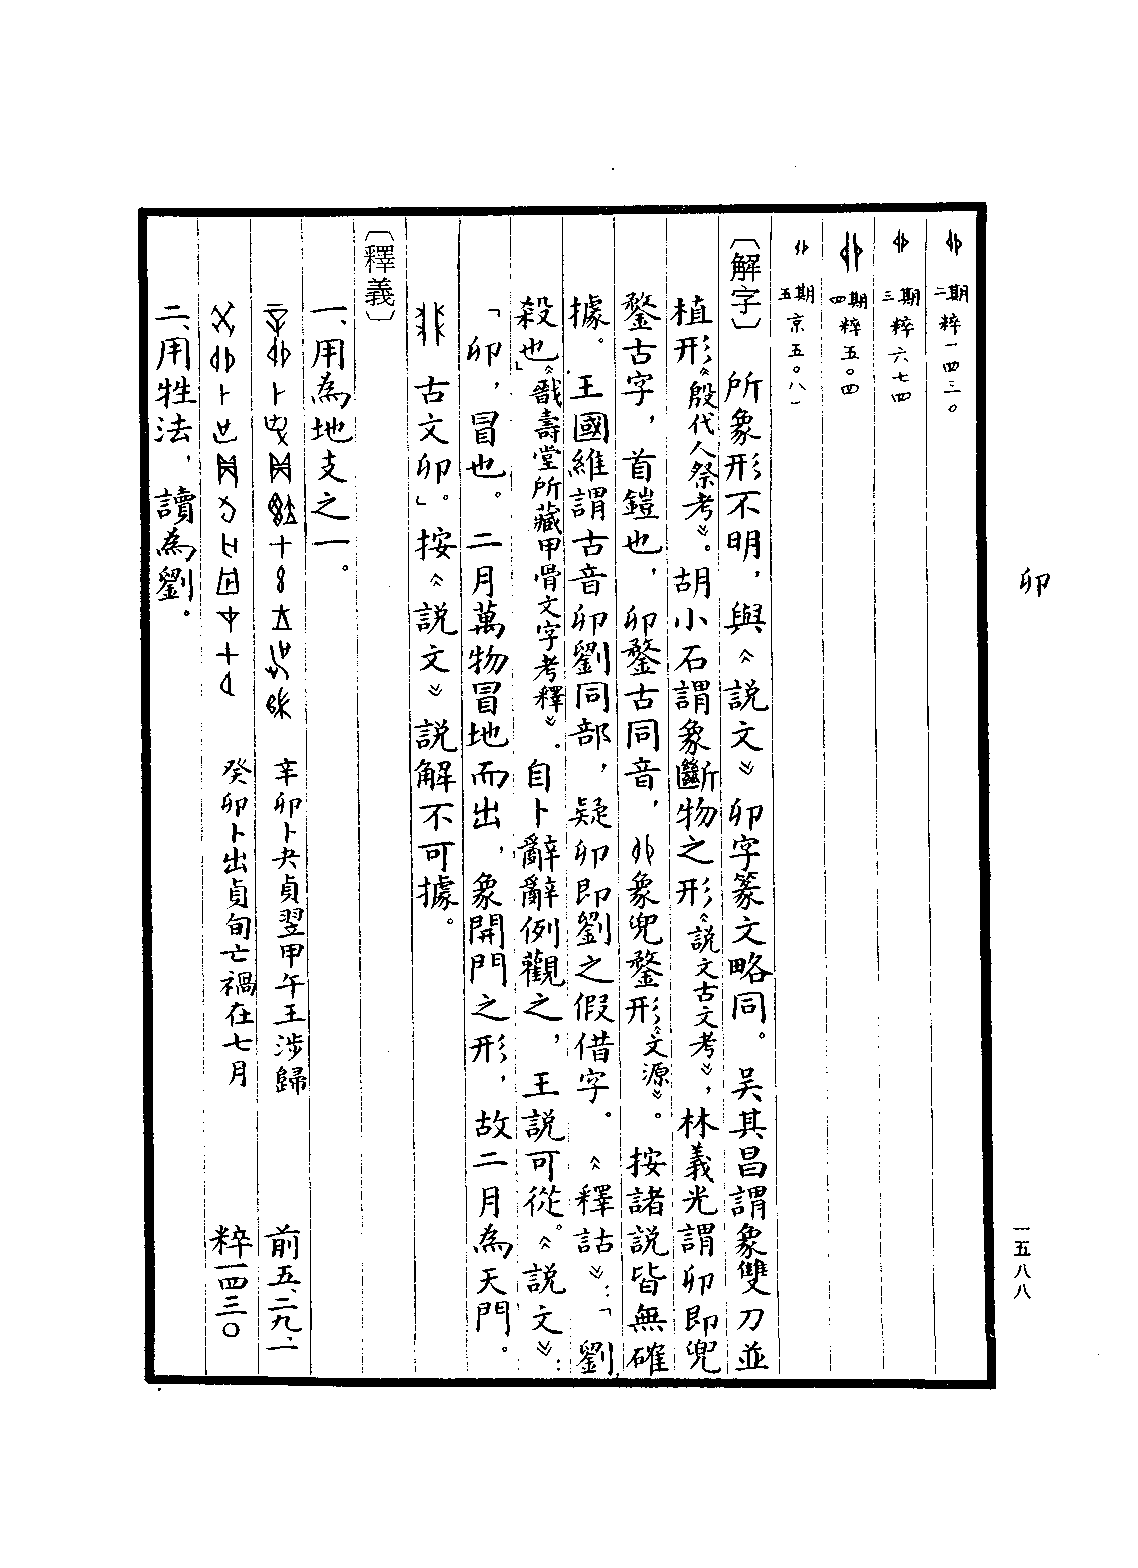 卯
二期 粹一四三〇
三期 粹六七四
四期 粹五〇四
五期 京五〇八一
〔解字〕 所象形不明，與《說文》卯字篆文略同。吴其昌謂象雙刀並
植形《殷代人祭考》。胡小石謂象斷物之形《說文古文考》，林義光謂卯即兜
鍪古字，首鎧也，卯鍪古同音，象兜鍪形《文源》。按諸說皆無確
據。王國維謂古音卯劉同部，疑卯即劉之假借字。《釋詁》：「劉，
殺也」《戩壽堂所藏甲骨文字考釋》．自卜辭辭例觀之，王說可從。《說文》：
「卯，冒也。二月萬物冒地而出，象開門之形，故二月為天門。
古文卯」。按《說文》說解不可據。
〔釋義〕
一、用為地支之一。
辛卯卜夬貞翌甲午王涉歸 前五、二九、一
癸卯卜出貞旬亡禍在七月 粹一四三〇
二、用牲法，讀為劉。
一五八八